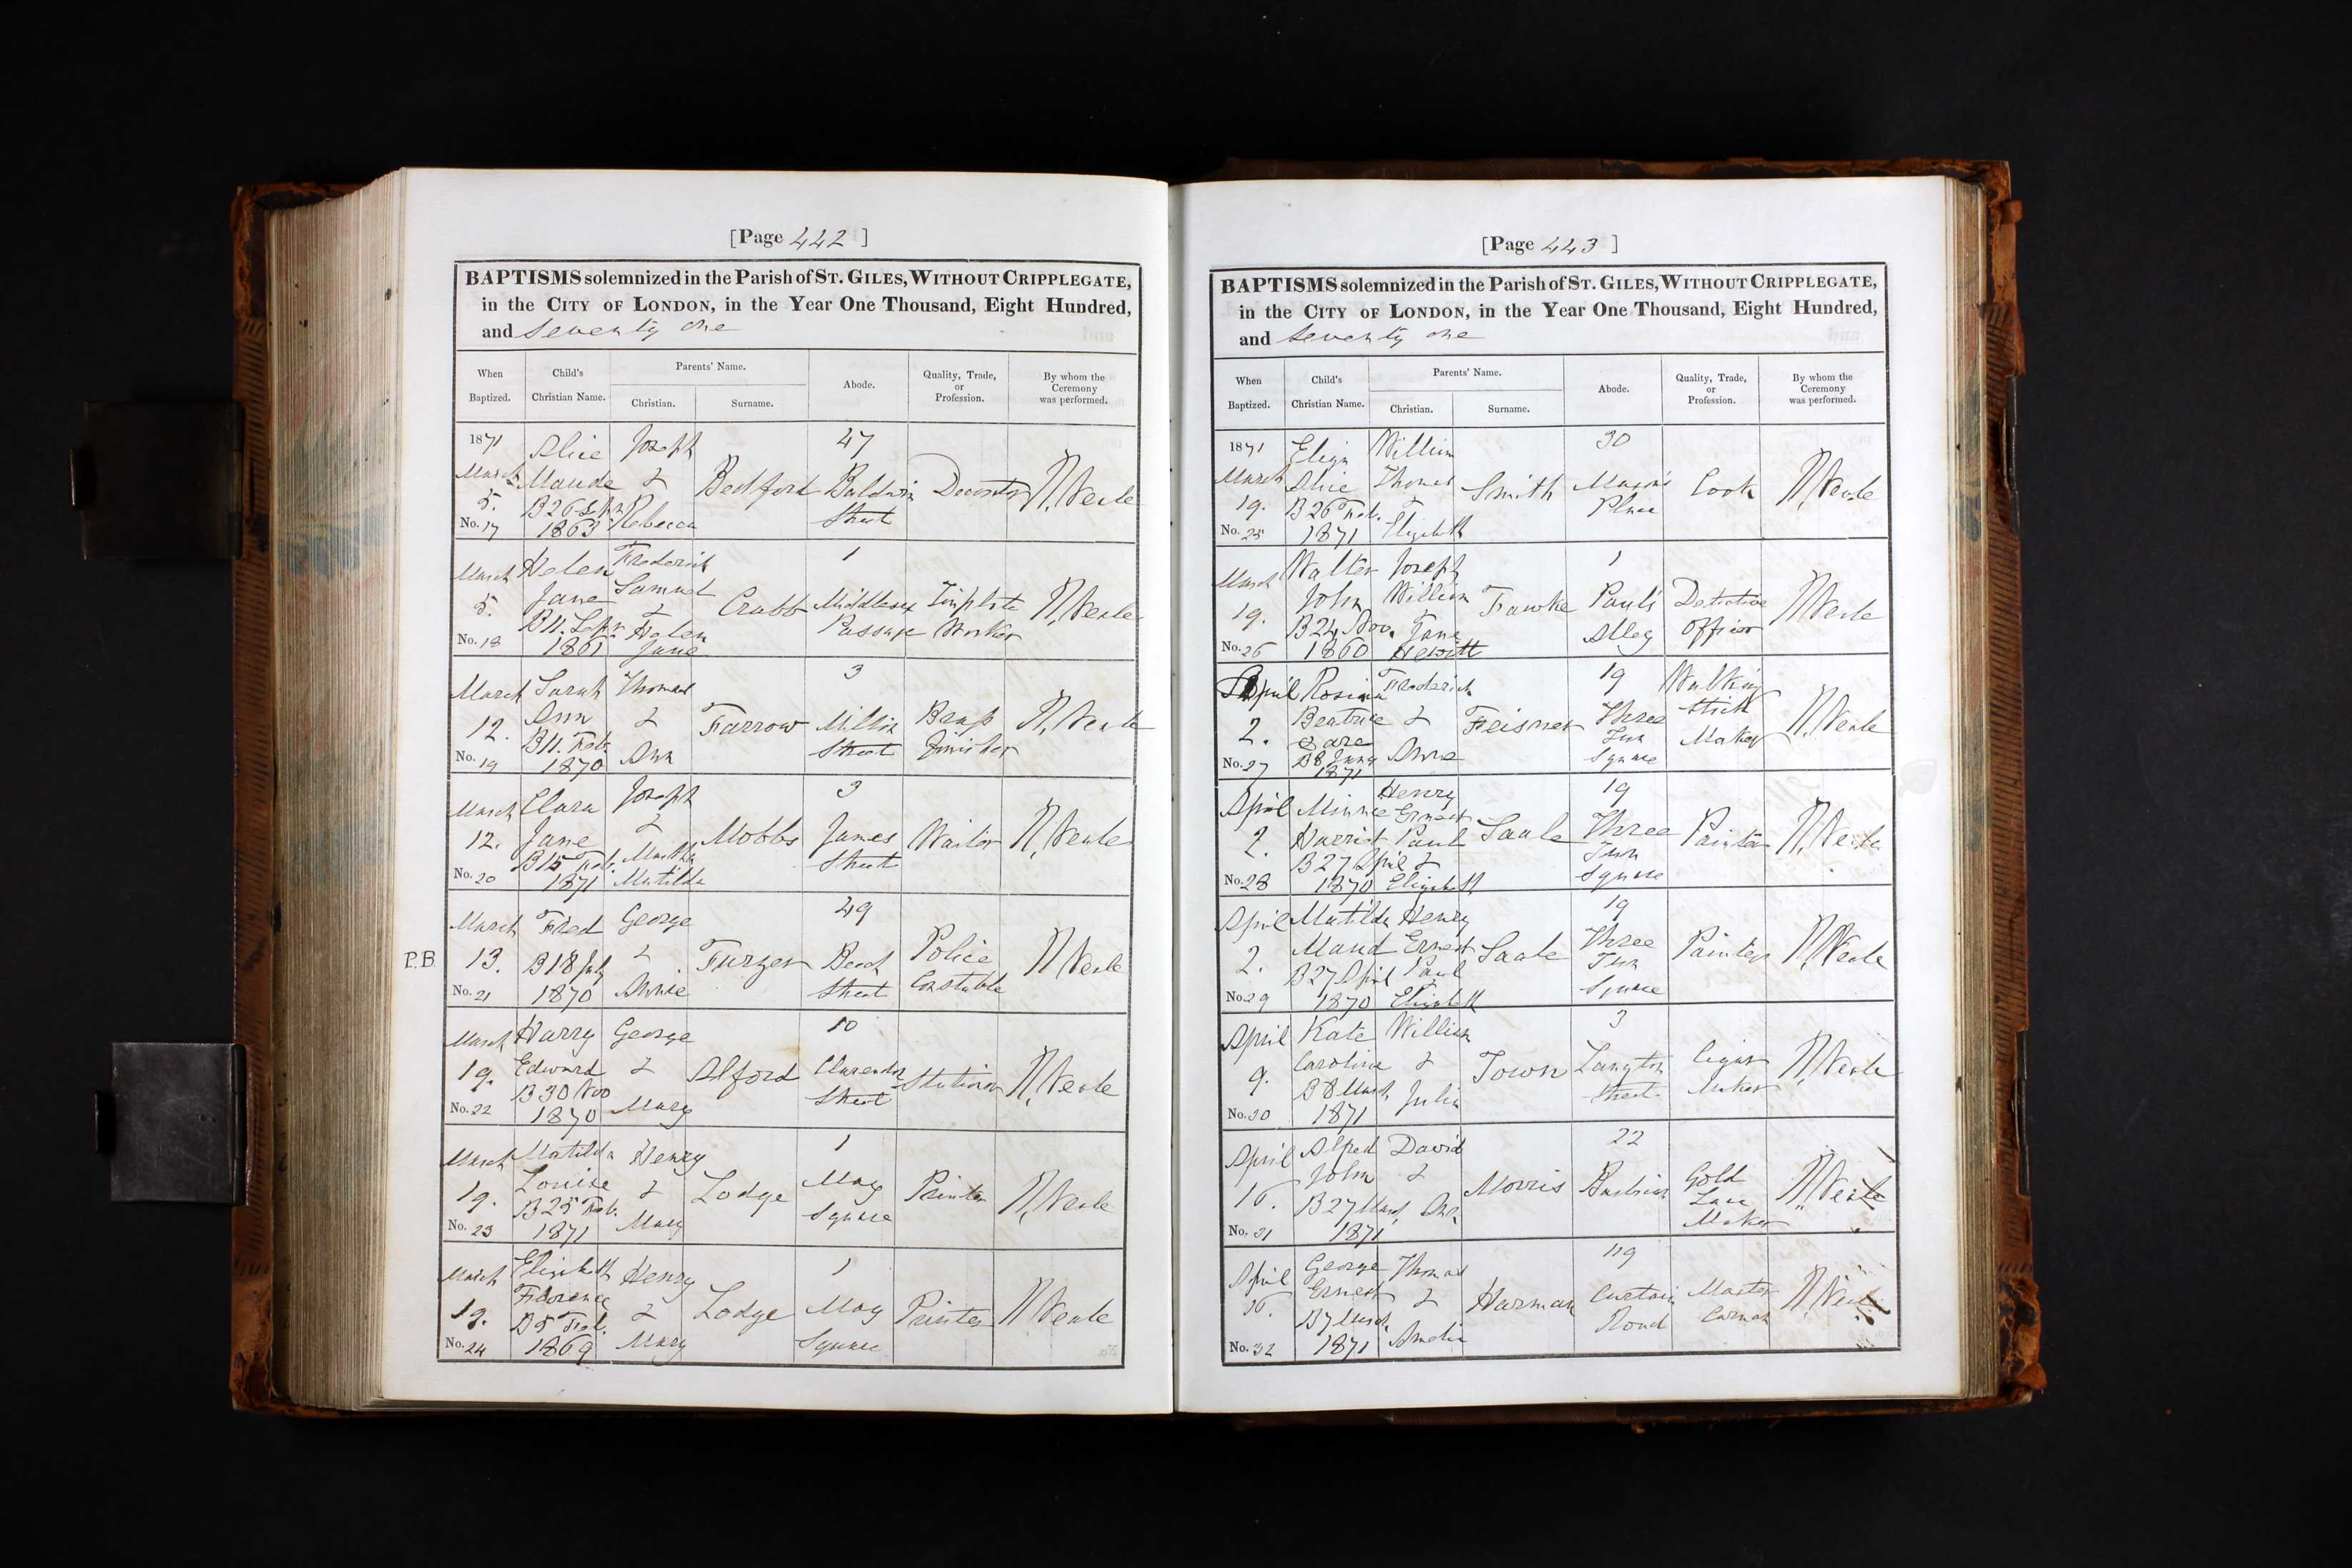 [Page 442 ]
BAPTISMS solemnized in the Parish of ST. GILES, WITHOUT CRIPPLEGATE,
in the CITY OF LONDON, in the Year One Thousand, Eight Hundred,
and Seventy one
When Baptized.
Child's Christian Name.
Parents' Name.
Christian.
Surname.
Abode.
Quality, Trade, or Profession.
By whom the Ceremony was performed.
1871 March 5. No. 17
Alice Maude B 26 Sepr 1863
Joseph & Rebecca
Bedford
47 Baldwin Street
Decorator
March 5. No. 18
Helen Jane B 11. Sepr. 1861
Frederick Samuel & Helen Jane
Crabb
1 Middlesex Passage
Tinplate Worker
March 12. No. 19
Sarah Ann B 11. Feb. 1870
Thomas & Ann
Farrow
3 Milton Street
Brass Finisher
March 12. No. 20
Clara Jane B 15 Feb. 1871
Joseph & Martha Matilda
Mobbs
3 James Street
Waiter
P.B.
March 13. No. 21
Fred B 18 July 1870
George & Annie
Furzer
49 Beech Street
Police Constable
March 19. No. 22
Harry Edward B 30 Nov 1870
George & Mary
Alford
10 Clarendon Street
Stationer
March 19. No. 23
Matilda Louise B 25 Feb. 1871
Henry & Mary
Lodge
1 May Square
March 19. No. 24
Elizabeth Florence B 5 Feb. 1869
Henry & Mary
Lodge
1 May Square
Printer
[Page 443 ]
BAPTISMS solemnized in the Parish of ST. GILES, WITHOUT CRIPPLEGATE,
in the CITY OF LONDON, in the Year One Thousand, Eight Hundred,
and Seventy one
When Baptized.
Child's Christian Name.
Parents' Name.
Christian.
Surname.
Abode.
Quality, Trade, or Profession.
By whom the Ceremony was performed.
1871 March 19. No. 25
Eliza Alice B 26 Feb. 1871
William Thomas & Elizabeth
Smith
30 Mason's Place
Cook
March 19. No. 26
Walter John B 24 Nov. 1860
Joseph William Jane Hewitt
Fawke
1 Paul's Alley
Detective Officer
April 2. No. 27
Rosina Beatrice B 8 1871
Frederick & Anne
Feisner
19 Three Tun Square
Walking Stick Maker
April 2. No. 28
Minnie Harriet B 27 April 1870
Henry Ernest Paul & Elizabeth
Saale
19 Three Tun Square
Painter
April 2. No. 29
Matilda Maud B 27 April 1870
Henry Ernest Paul Elizabeth
Saale
19 Three Tun Square
Painter
April 9. No. 30
Kate Caroline B 8 March 1871
William & Julia
Town
3 Langton Street
Cigar Maker
April 16. No. 31
Alfred John B 27 March 1871
David & Ann
Morris
22 Barbican
Gold Lace Maker
April 16. No. 32
George Ernest B 7 March 1871
Thomas & Amelia
Harman
119 Curtain Road
Master